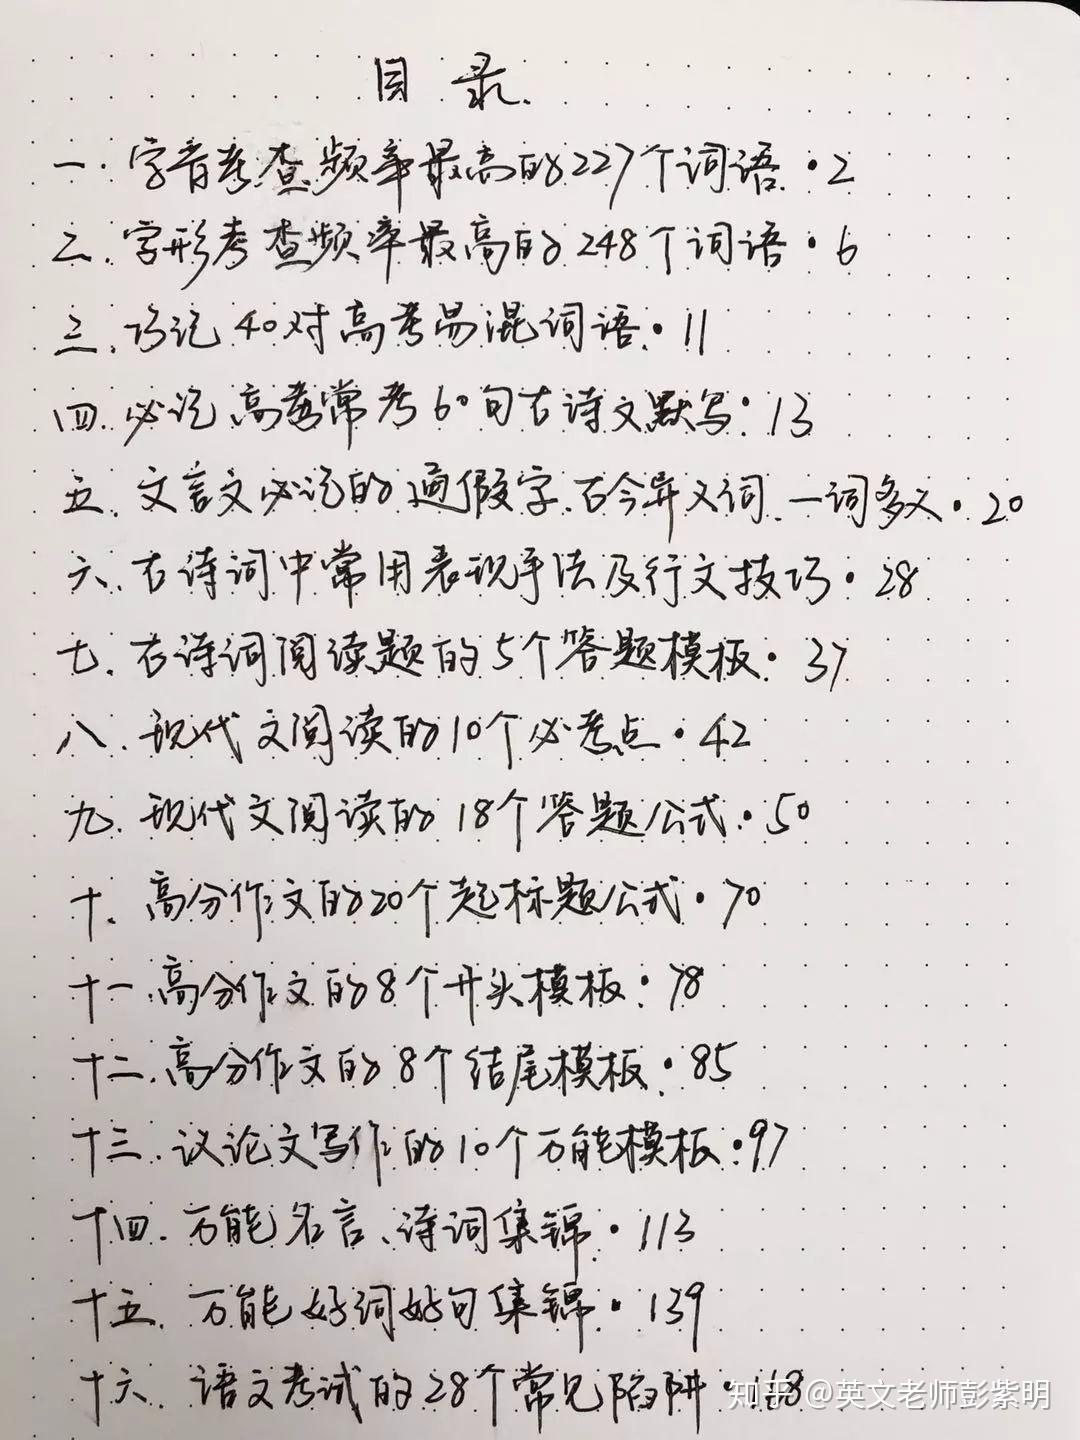 目录.
一.字音考查频率最高的227个词语·2
二.字形考查频率最高的248个词语·6
三.巧记40对高考易混词语·11
四.必记高考常考60句古诗文默写·13
五.文言文必记的通假字.古今异义词.一词多义·20
六.古诗词中常用表现手法及行文技巧·28
七.古诗词阅读题的5个答题模板·37
八.现代文阅读的10个必考点·42
九.现代文阅读的18个答题公式·50
十.高分作文的20个起标题公式·70
十一.高分作文的8个开头模板·78
十二.高分作文的8个结尾模板·85
十三.议论文写作的10个万能模板·97
十四.万能名言、诗词集锦·113
十五.万能好词好句集锦·139
十六.语文考试的28个常见陷阱
知乎 @英文老师彭紫明